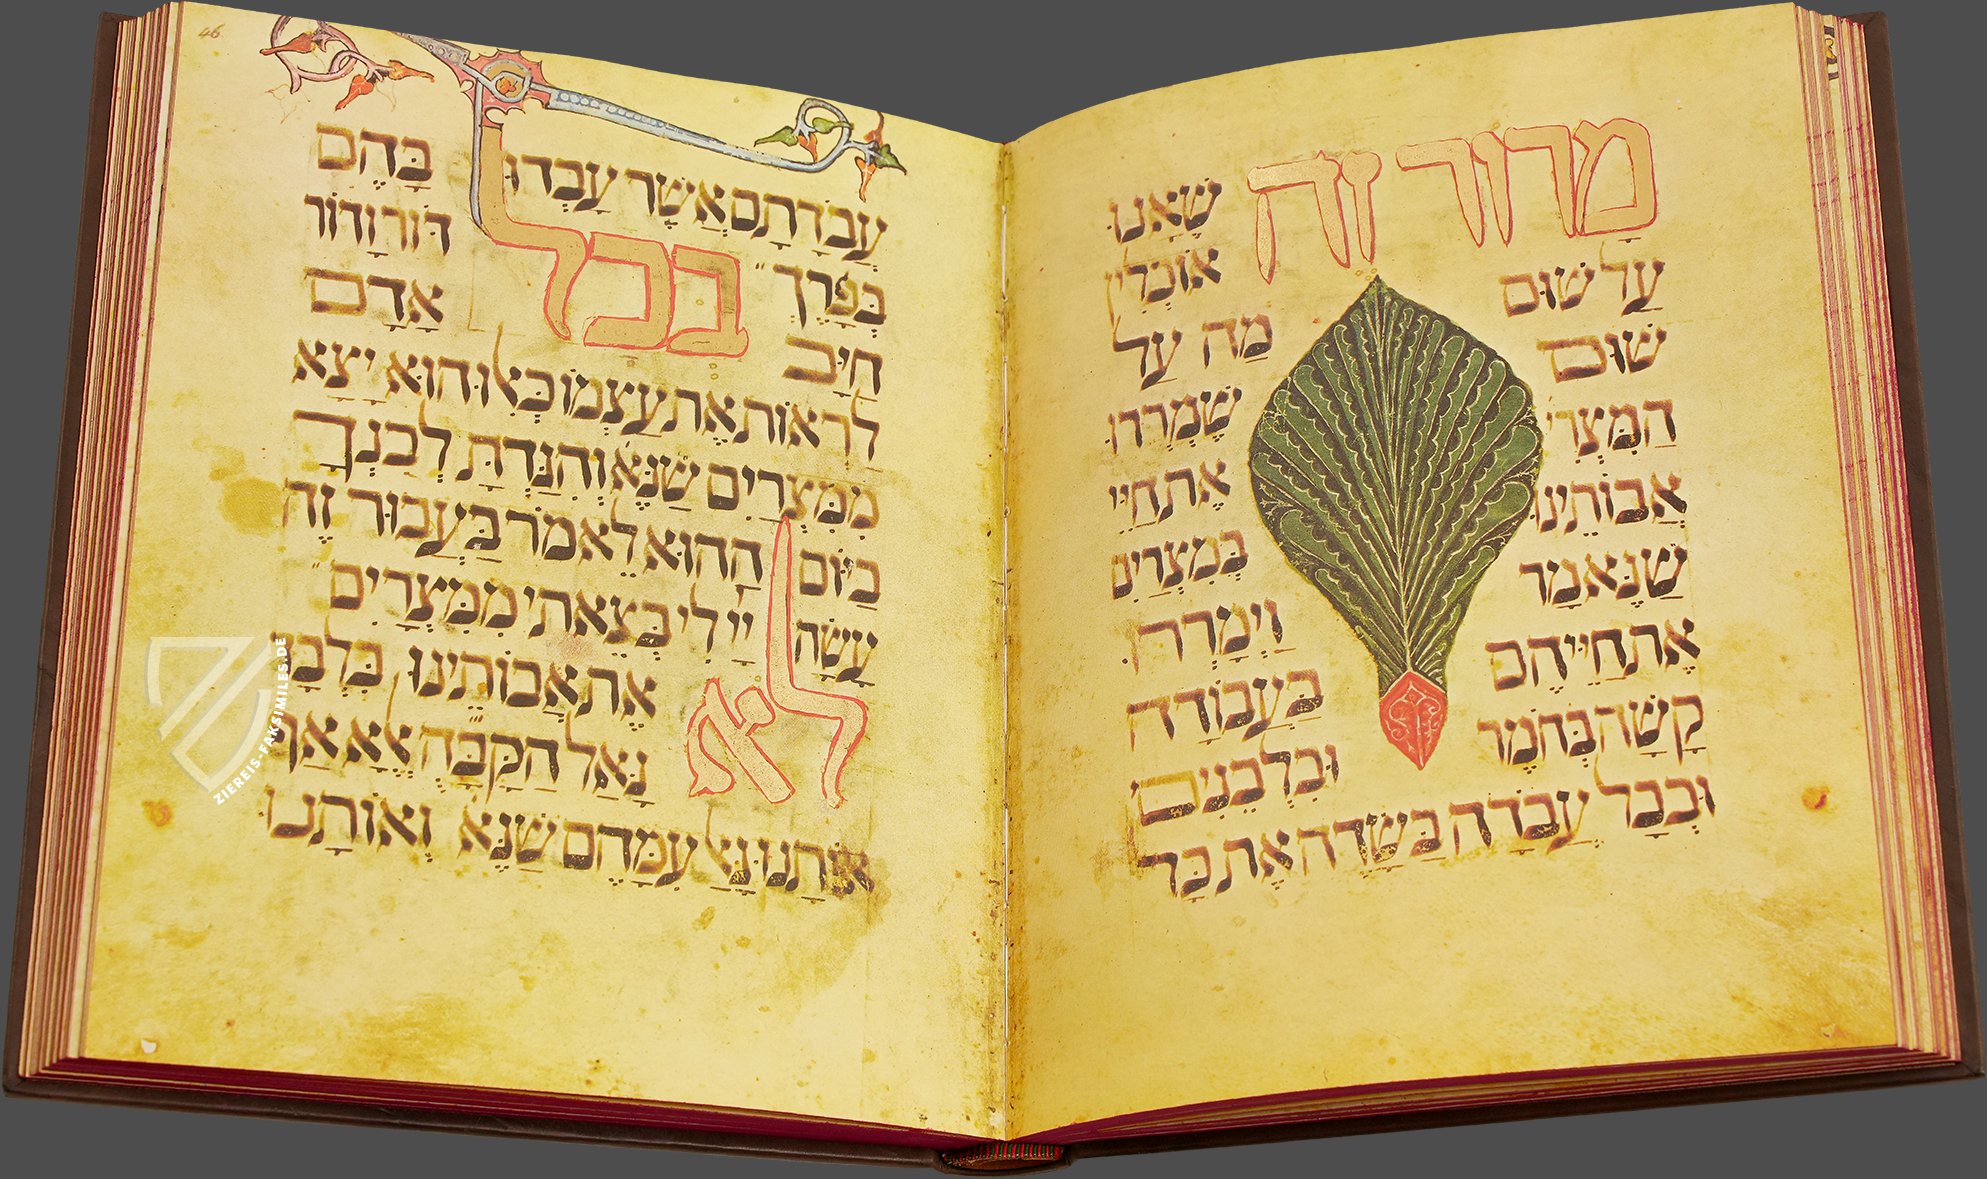 46
מָרוֹר זֶה שֶׁאָנוּ
אוֹכְלִין
עַל שׁוּם מַה עַל
שׁוּם שֶׁמֵרְרוּ
הַמִּצְרִי אֶת חַיֵּי
אֲבוֹתֵינוּ בְּמִצְרַיִם
שֶׁנֶּאֱמַר וַיְמָרְרוּ
אֶת חַיֵּיהֶם בַּעֲבוֹדָה
קָשָׁה בְּחֹמֶר וּבִלְבֵנִים
וּבְכָל עֲבֹדָה בַּשָּׂדֶה אֶת כָּד
עֲבֹדָתָם אֲשֶׁר עָבְדוּ בָּהֶם
בְּפָרֶךְ בְּכָל דּוֹר וָדוֹר
חַיָּב אָדָם
לִרְאוֹת אֶת עַצְמוֹ כְּאִלּוּ הוּא יָצָא
מִמִּצְרַיִם שֶׁנֶּא וְהִגַּדְתָּ לְבִנְךָ
בַּיּוֹם הַהוּא לֵאמֹר בַּעֲבוּר זֶה
עָשָׂה יְיָ לִי בְּצֵאתִי מִמִּצְרָיִם
לֹא אֶת אֲבוֹתֵינוּ בִּלְבַד
גָּאַל הַקָּבָּה אֶלָּא אַף
אוֹתָנוּ גָּאַל עִמָּהֶם שֶׁנֶּא וְאוֹתָנוּ
ZIEREIS-FAKSIMILES.DE